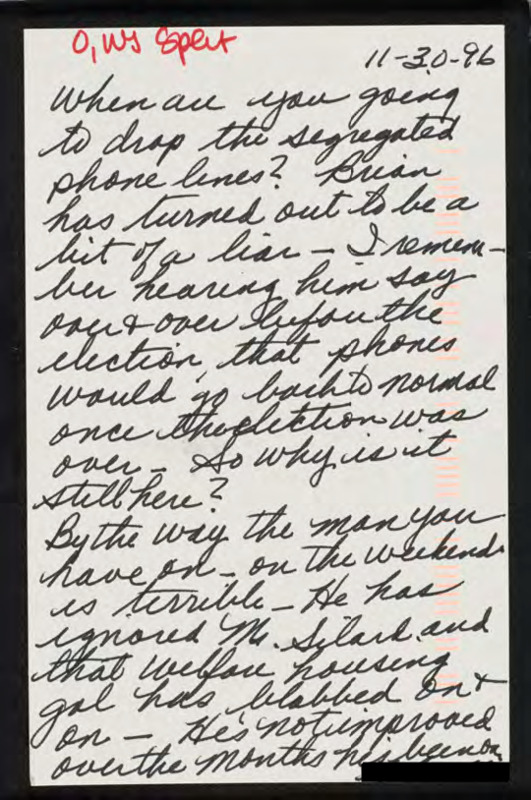 O, WJ Split
11-30-96
When are you going
to drop the segregated
phone lines? Brian
has turned out to be a
bit of a liar - I remem-
ber hearing him say
over & over before the
election, that phones
would go back to normal
once the election was
over - So why is it
still here?
By the way the man you
have on - on the weekends
is terrible - He has
ignored Mr. Silard and
that welfare housing
gal has blabbed on &
on - He's not improved
over the months he's been on